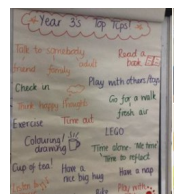 Year 3's Top Tips!
Talk to somebody
friend family adult
Read a book
Check in
Play with others/toys
Think happy thoughts
Go for a walk
fresh air
Exercise
Time out
LEGO
Colouring/
drawing
Time alone "Me time"
Time to reflect
Cup of tea!
Have a
nice big hug
Have a nap
Play with